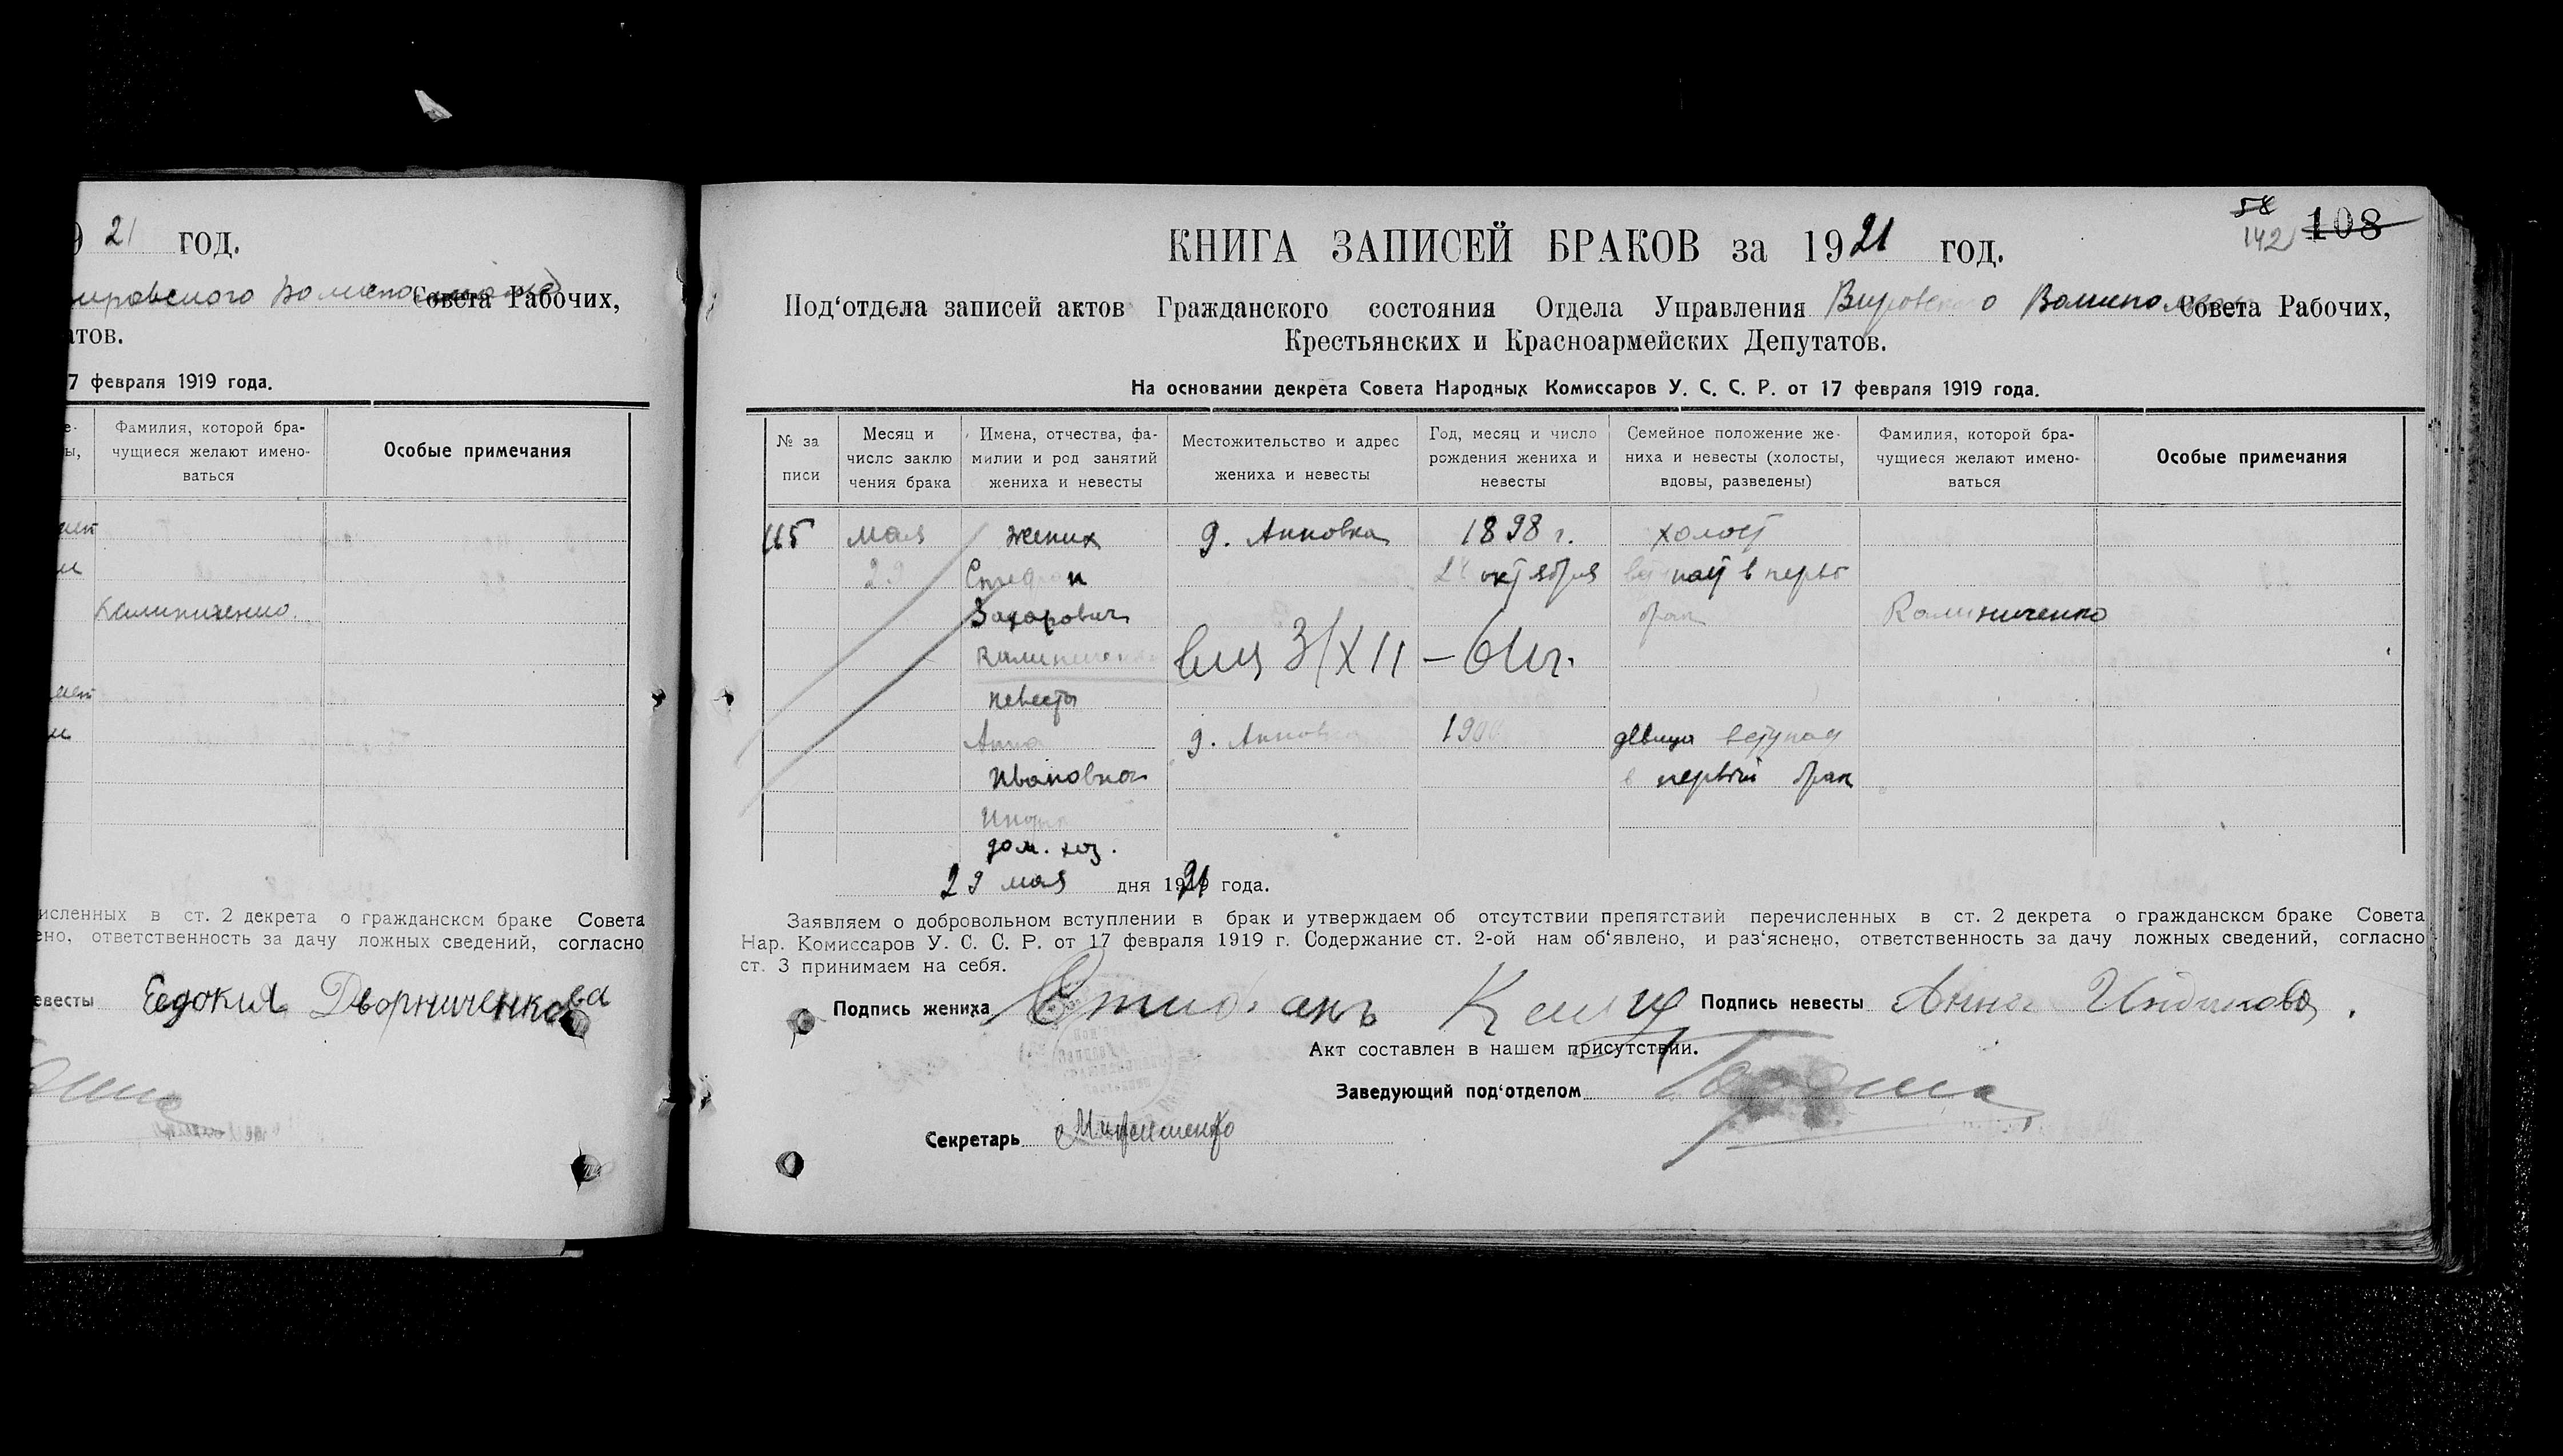 21 год.
Совета Рабочих,
атов.
7 февраля 1919 года.
Фамилия, которой бра-
чущиеся желают имено-
ваться
Особые примечания
Калиниченко
исленных в ст. 2 декрета о гражданском браке Совета
ено, ответственность за дачу ложных сведений, согласно
евесты Евдокия Дворниченкова
58
142
108
КНИГА ЗАПИСЕЙ БРАКОВ за 1921 год.
Под‘отдела записей актов Гражданского состояния Отдела Управления Вировского Волисполкома Совета Рабочих,
Крестьянских и Красноармейских Депутатов.
На основании декрета Совета Народных Комиссаров У. С. С. Р. от 17 февраля 1919 года.
№ за
писи
Месяц и
число заклю
чения брака
Имена, отчества, фа-
милии и род занятий
жениха и невесты
Местожительство и адрес
жениха и невесты
Год, месяц и число
рождения жениха и
невесты
Семейное положение же-
ниха и невесты (холосты,
вдовы, разведены)
Фамилия, которой бра-
чущиеся желают имено-
ваться
Особые примечания
115 мая жених д. Анновка 1898 г. холост
29 Стефан октября в перв
Захарович брак Калиниченко
Калиниченко 3/XII – 61г.
невеста
Анна д. Анновка 1900 девица вступает
Ивановна в первый брак
дом. хоз.
29 мая дня 1921 года.
Заявляем о добровольном вступлении в брак и утверждаем об отсутствии препятствий перечисленных в ст. 2 декрета о гражданском браке Совета
Нар. Комиссаров У. С. С. Р. от 17 февраля 1919 г. Содержание ст. 2-ой нам об‘явлено, и раз‘яснено, ответственность за дачу ложных сведений, согласно
ст. 3 принимаем на себя.
Подпись жениха Подпись невесты Анна
Акт составлен в нашем присутствии.
Заведующий под‘отделом
Секретарь